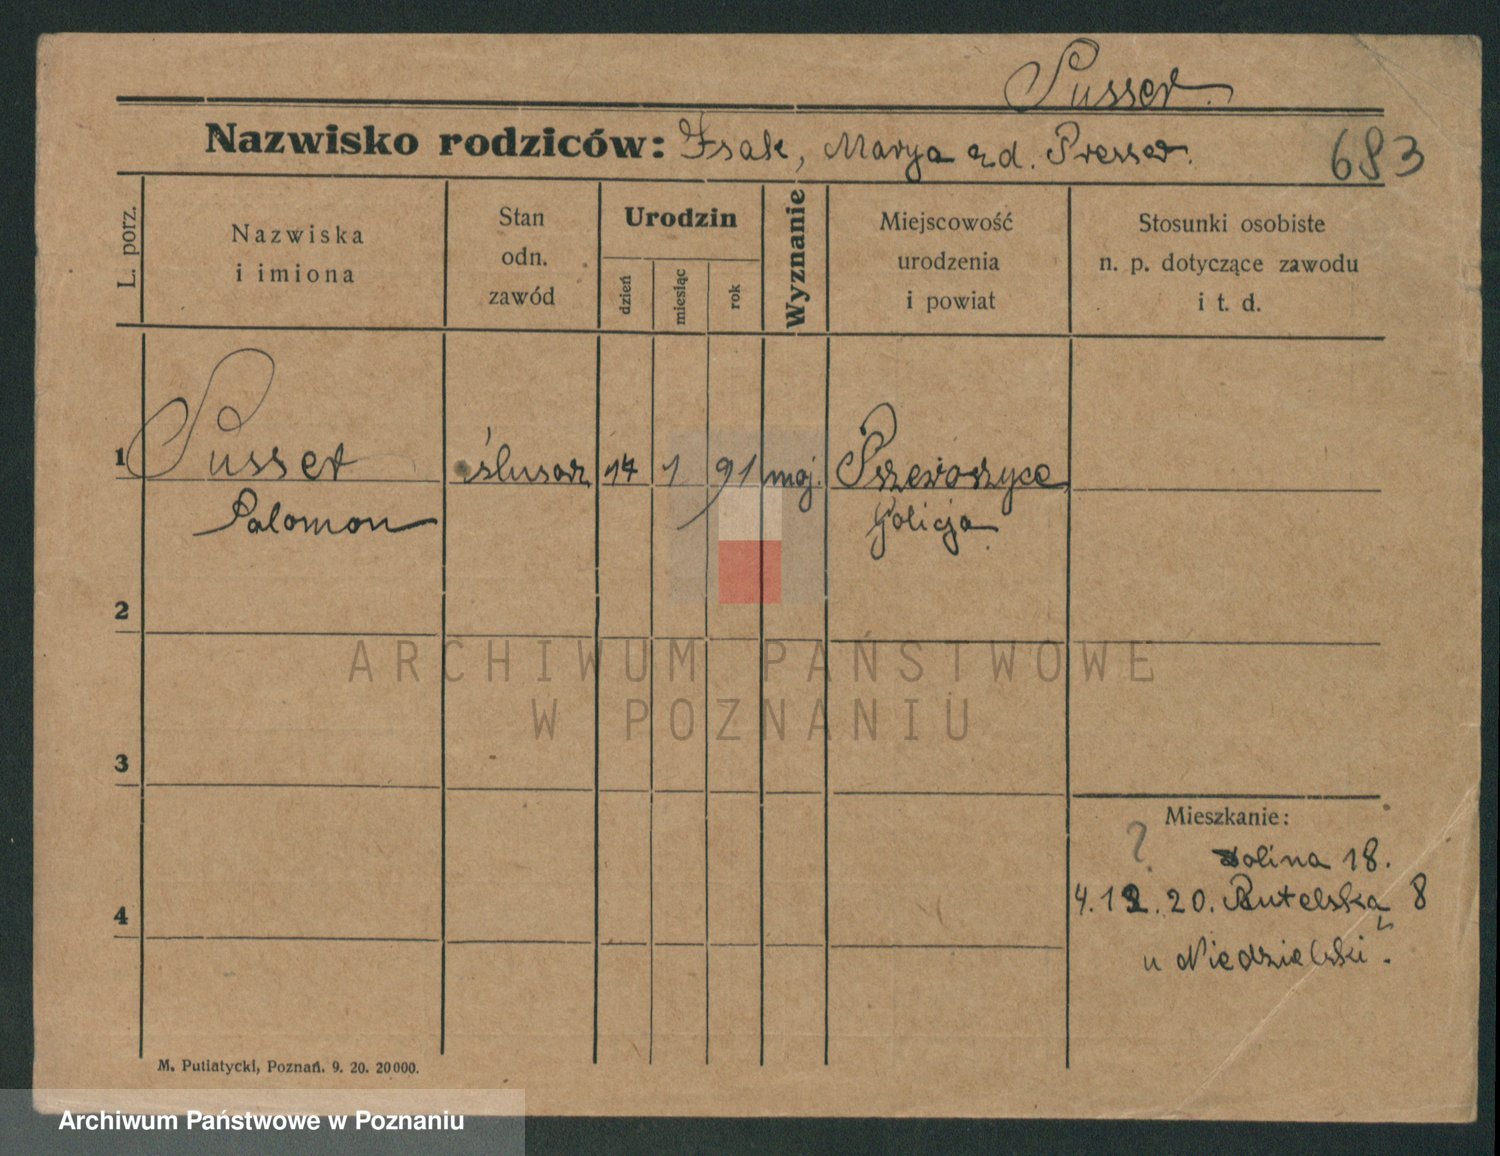 Susser
Nazwisko rodziców: Izak, Marya zd. Presser.
683
L. porz.
Nazwiska
i imiona
Stan
odn.
zawód
Urodzin
dzień
miesiąc
rok
Wyznanie
Miejscowość
urodzenia
i powiat
Stosunki osobiste
n. p. dotyczące zawodu
i t. d.
1 Susser ślusarz 17 1 91 moj.
Salomon Galicja
2
3
4
Mieszkanie:
? 18.
4.12.20. 8
u Niedzielski.
M. Putiatycki, Poznań. 9. 20. 20000.
ARCHIWUM PAŃSTWOWE
W POZNANIU
Archiwum Państwowe w Poznaniu